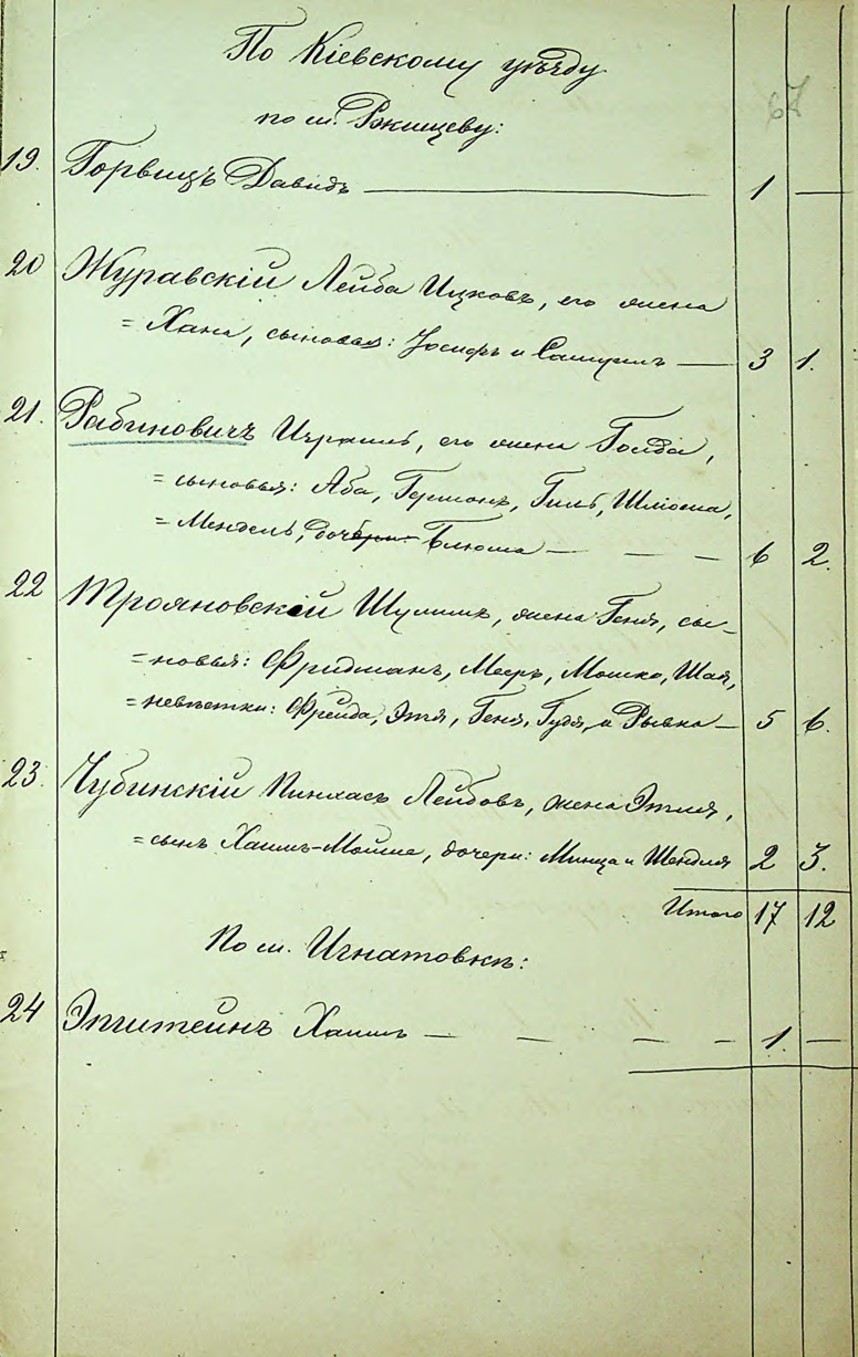 По Кіевскому уѣзду
67
по м. Ржищеву:
19. Горвицъ Давидъ — 1 —
20 Журавскій Лейба Ицковъ, его жена
= Хана, сыновья: Іосифъ и Самуилъ — 3 1.
21. Рабиновичъ Израиль, его жена Голда,
= сыновья: Аба, Гершонъ, Гиль, Шліома,
= Мендель, дочери Блюма — — — 6 2.
22 Трояновскій Шулимъ, жена Геня, сы-
= новья: Фридманъ, Мееръ, Мошко, Шая,
= невѣстки: Фрейда, Этя, Геня, Гудя, и Рывка — 5 6.
23. Чубинскій Пинхасъ Лейбовъ, жена Этля,
= сынъ Хаимъ-Мойше, дочери: Минца и Шендля 2 3.
Итого 17 12
По м. Игнатовкѣ:
24 Эпштейнъ Хаимъ — — — — 1. —